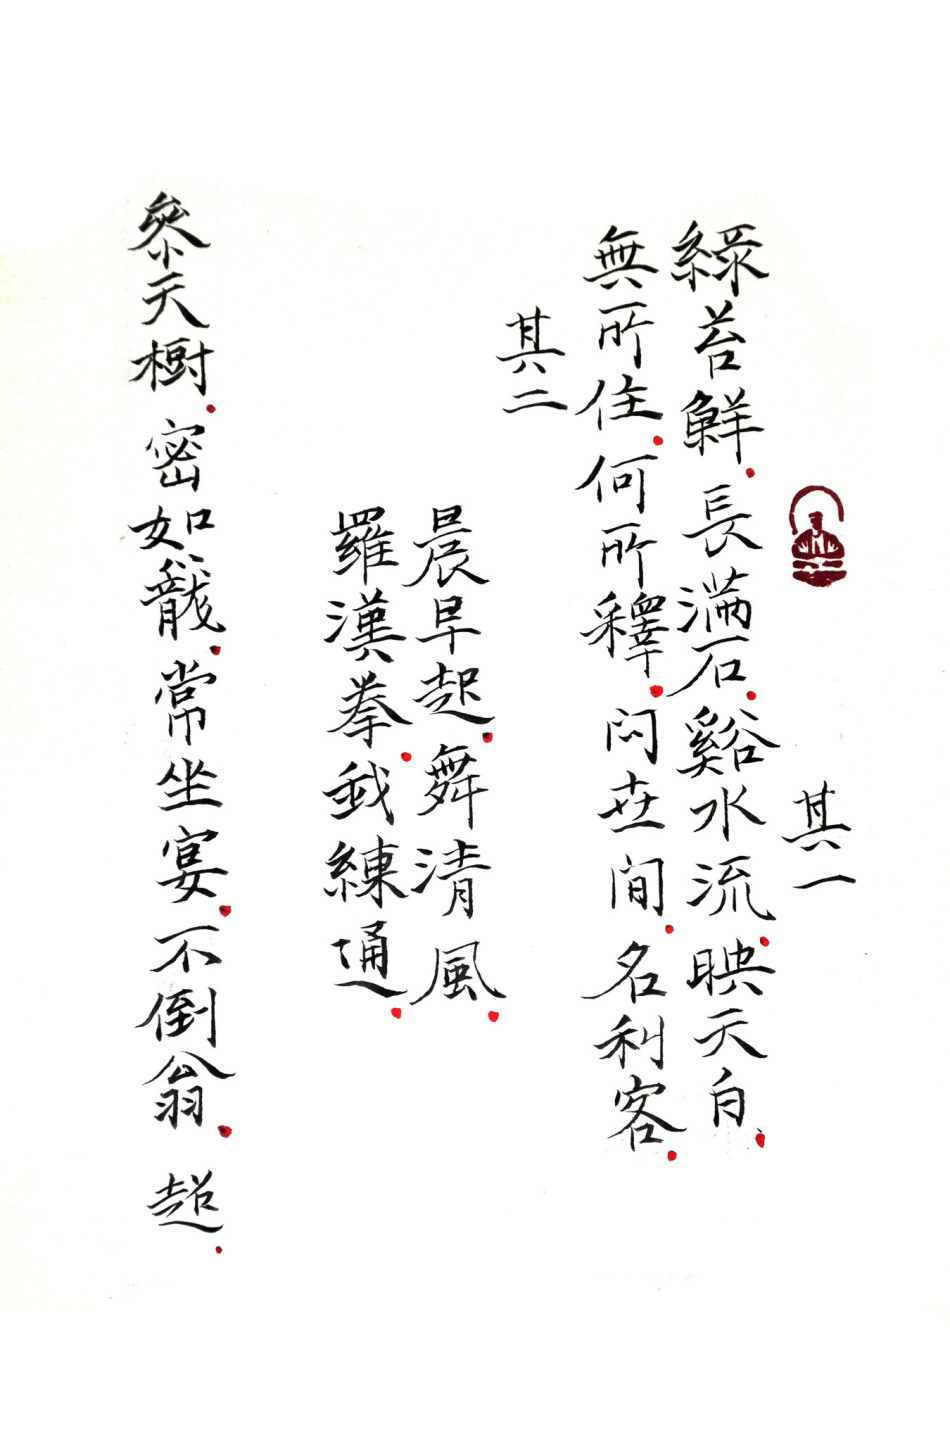 其一
綠苔鮮.長滿石.谿水流.映天白.
無所住.何所釋.问世間.名利客.
其二
晨早起.舞清風.
羅漢拳.我練通.
參天樹.密如蘢.常坐宴.不倒翁.趙.